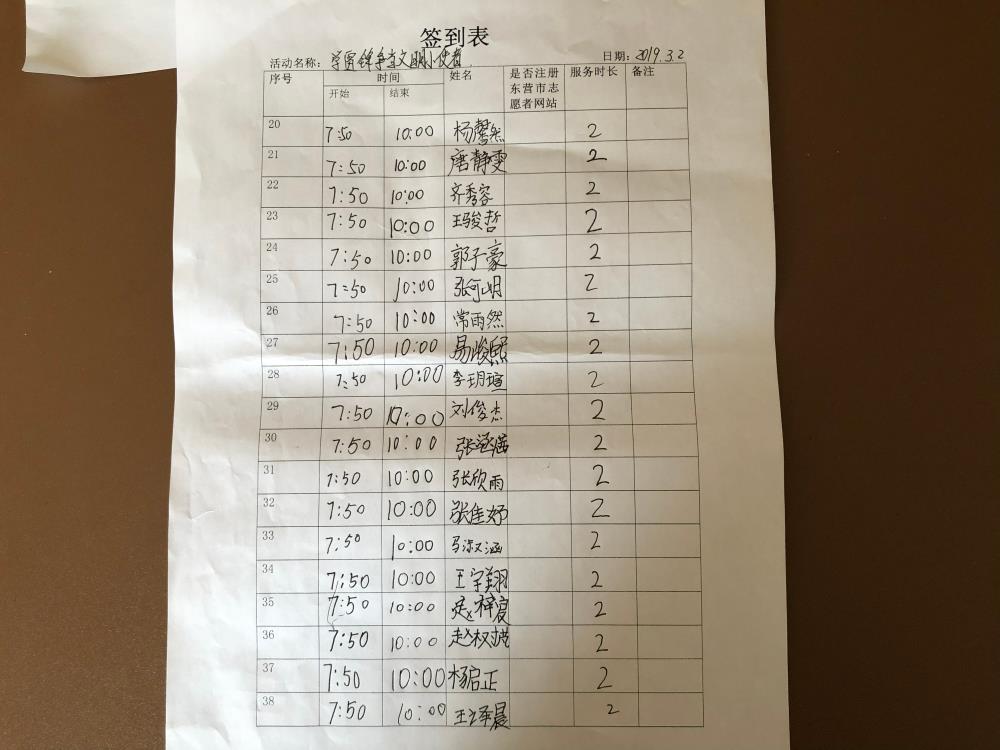 签到表
活动名称：学雷锋争当文明小使者 日期：2019.3.2
序号 时间 姓名 是否注册 服务时长 备注
开始 结束 东营市志
愿者网站
20 7:50 10:00 杨馨然 2
21 7:50 10:00 唐静雯 2
22 7:50 10:00 齐秀容 2
23 7:50 10:00 王骏哲 2
24 7:50 10:00 郭子豪 2
25 7:50 10:00 张珂明 2
26 7:50 10:00 常雨然 2
27 7:50 10:00 易峻熙 2
28 7:50 10:00 李玥瑄 2
29 7:50 10:00 刘俊杰 2
30 7:50 10:00 张涵 2
31 7:50 10:00 张欣雨 2
32 7:50 10:00 张佳妤 2
33 7:50 10:00 马淑涵 2
34 7:50 10:00 王宇翔 2
35 7:50 10:00 2
36 7:50 10:00 赵权 2
37 7:50 10:00 杨启正 2
38 7:50 10:00 王泽晨 2